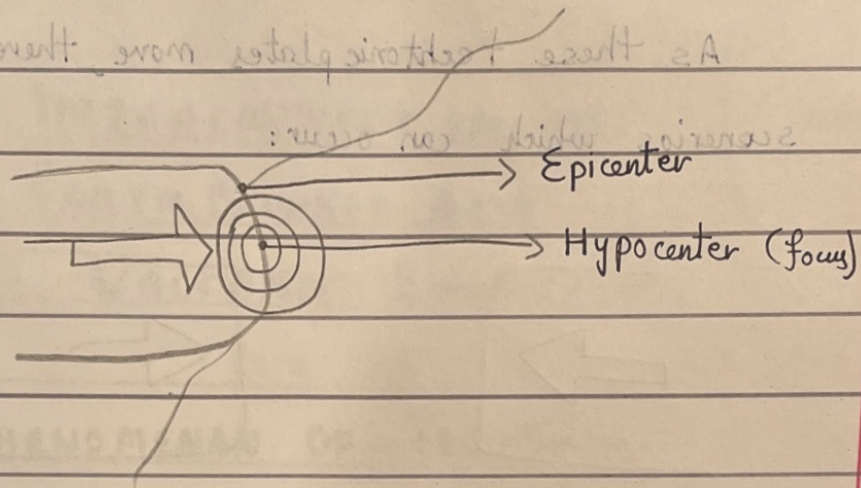 Epicenter
Hypocenter (focus)